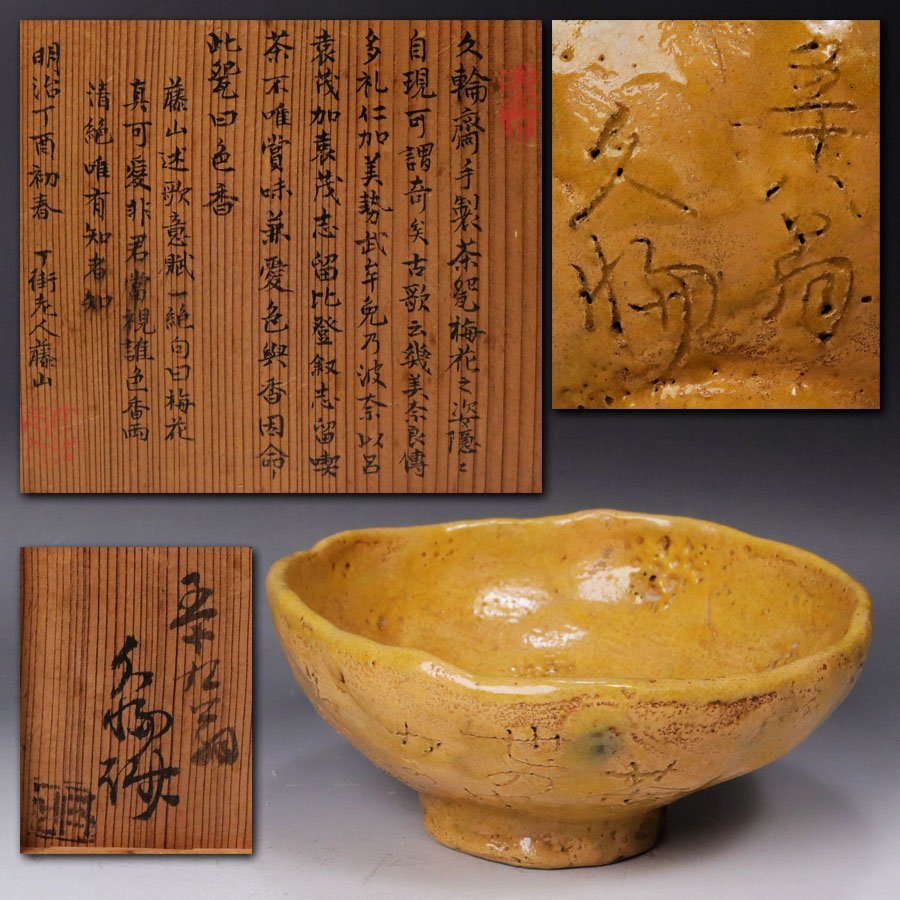 久輪齋手製茶甌梅花之姿隱〻
自現可謂奇矣古歌云幾美奈良傳
多礼仁加美勢武宇免乃波奈以呂
袁茂加袁茂志留比登叙志留喫
茶不唯賞味兼愛色與香因命〻
此甌曰色香
藤山述歌意賦一絶句曰梅花
真可愛非君當視誰色香両
清絶唯有知者知
明治丁酉初春 丁街老人藤山
久輪
五十九翁
久輪